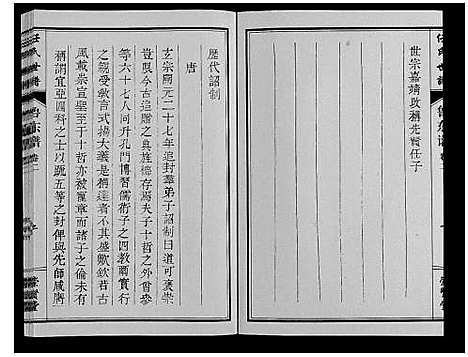 世宗嘉靖改稱先賢任子
歷代詔制
唐
玄宗開元二十七年追封羣弟子詔制曰道可褒崇
豈限今古追贈之典旌德存焉夫子十哲之外曾參
等六十七人同升孔門博習儒術子之四教爾實行
之親受教言式揚大義是稱達者不其盛歟欽若古
風載崇宣聖至于十哲亦被寵章而諸子之倫未有
稱謂宜亞四科之士以疏五等之封俾與先師咸膺
任氏世譜